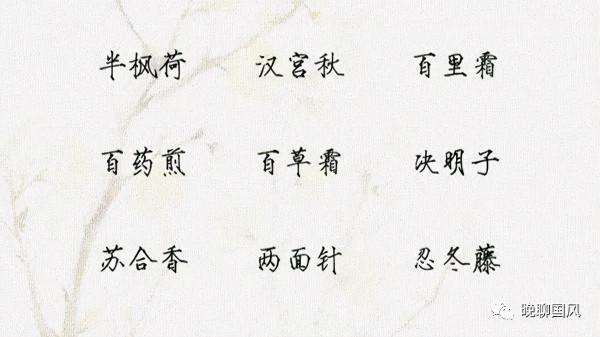 半枫荷 汉宫秋 百里霜
百药煎 百草霜 决明子
苏合香 两面针 忍冬藤
晚聊国风